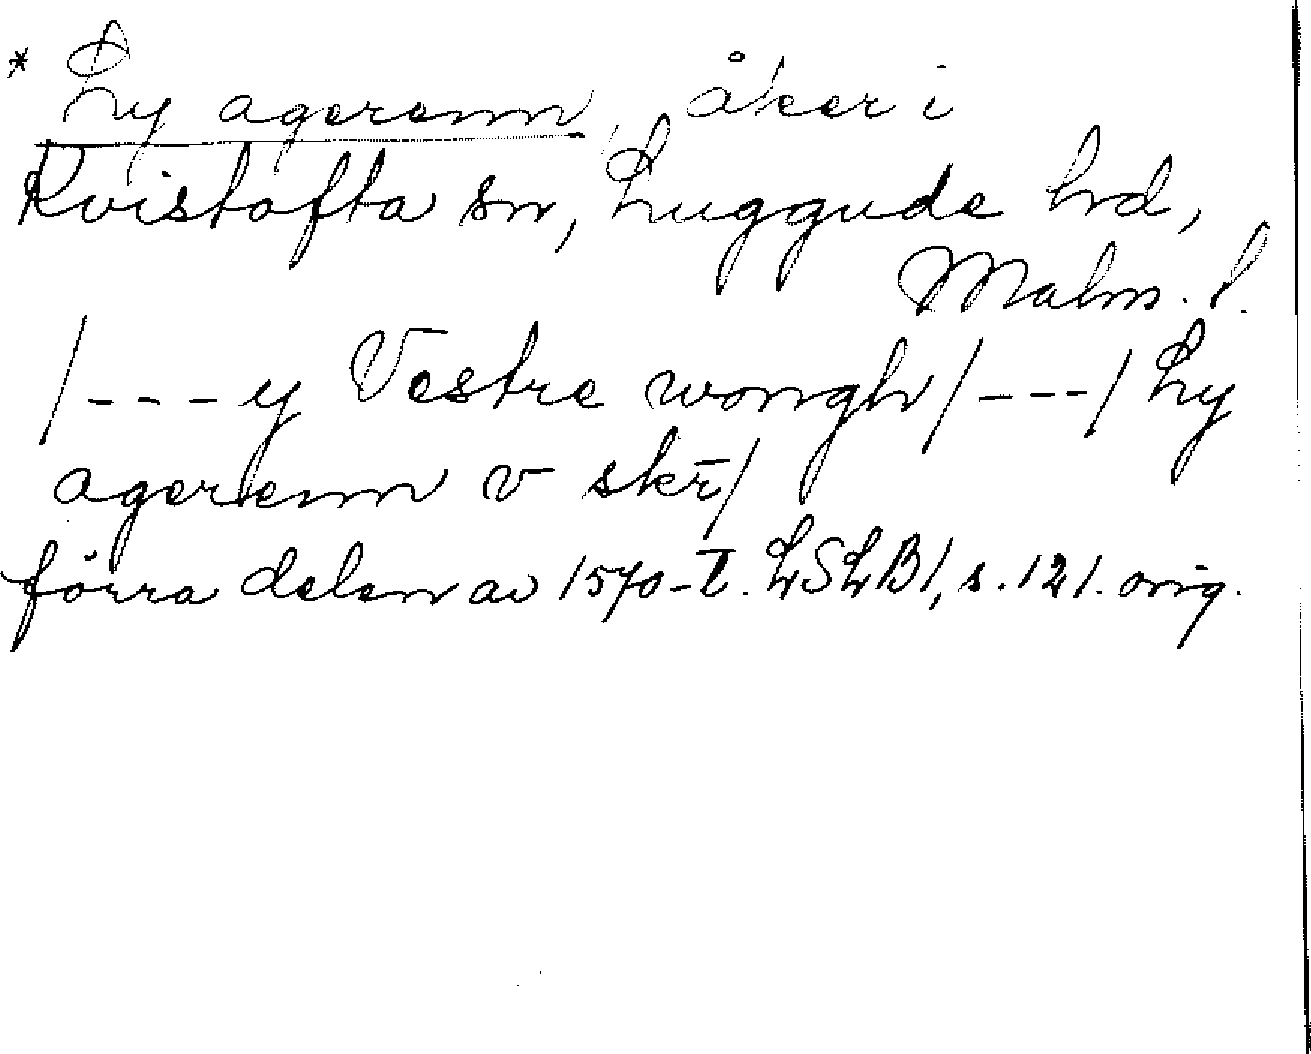 * Ly agerenn, åker i
Kvistofta sn, Luggude hd,
Malm. l.
/---y Vestre wongh/---/ Ly
agerenn v skr̄/
förra delen av 1570-t. LSLB1, s. 121. orig.